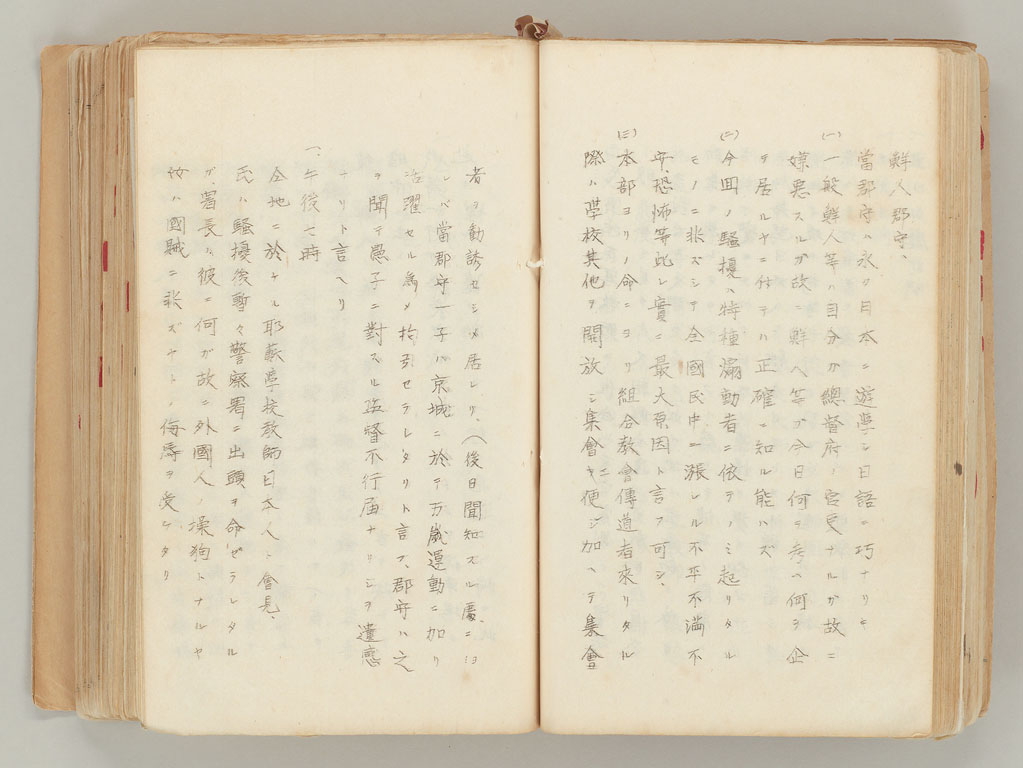 鮮人郡守、
當郡守ハ永ク日本ニ遊學シ日語ニ巧ナリキ
(一)一般鮮人等ハ自分ガ總督府ノ官吏ナルガ故ニ
嫌惡スルガ故ニ鮮人等ガ今日何ヲ考ヘ何ヲ企
テ居ルヤニ付テハ正確ニ知ル能ハズ
(二)今囬ノ騷擾ハ特種煽動者ニ依テノミ起リタル
モノニ非ズシテ全國民中ニ漲レル不平不滿不
安、恐怖等此レ實ニ最大原因ト言フ可シ、
(三)本部ヨリノ命ニヨリ組合敎會傳道者來リタル
際ハ學校其他ヲ開放シ集會ニ便ヲ加ヘテ集會
者ヲ勸誘セシメ居レリ、(後日聞知スル處ニヨ
レバ當郡守一子ハ京城ニ於テ万歲運動ニ加リ
活躍セル為メ拘引セラレタリト言フ、郡守ハ之
ヲ聞テ愚子ニ對スル監督不行届ナリシヲ遺憾
ナリト言ヘリ
一、午後七時
仝地ニ於ケル耶蘇學校敎師日本人ト會見、
氏ハ騷擾後暫々警察署ニ出頭ヲ命ゼラレタル
ガ、署長ハ彼ニ何ガ故ニ外國人ノ操狗トナルヤ
汝ハ國賊ニ非ズヤト、侮辱ヲ受ケタリ